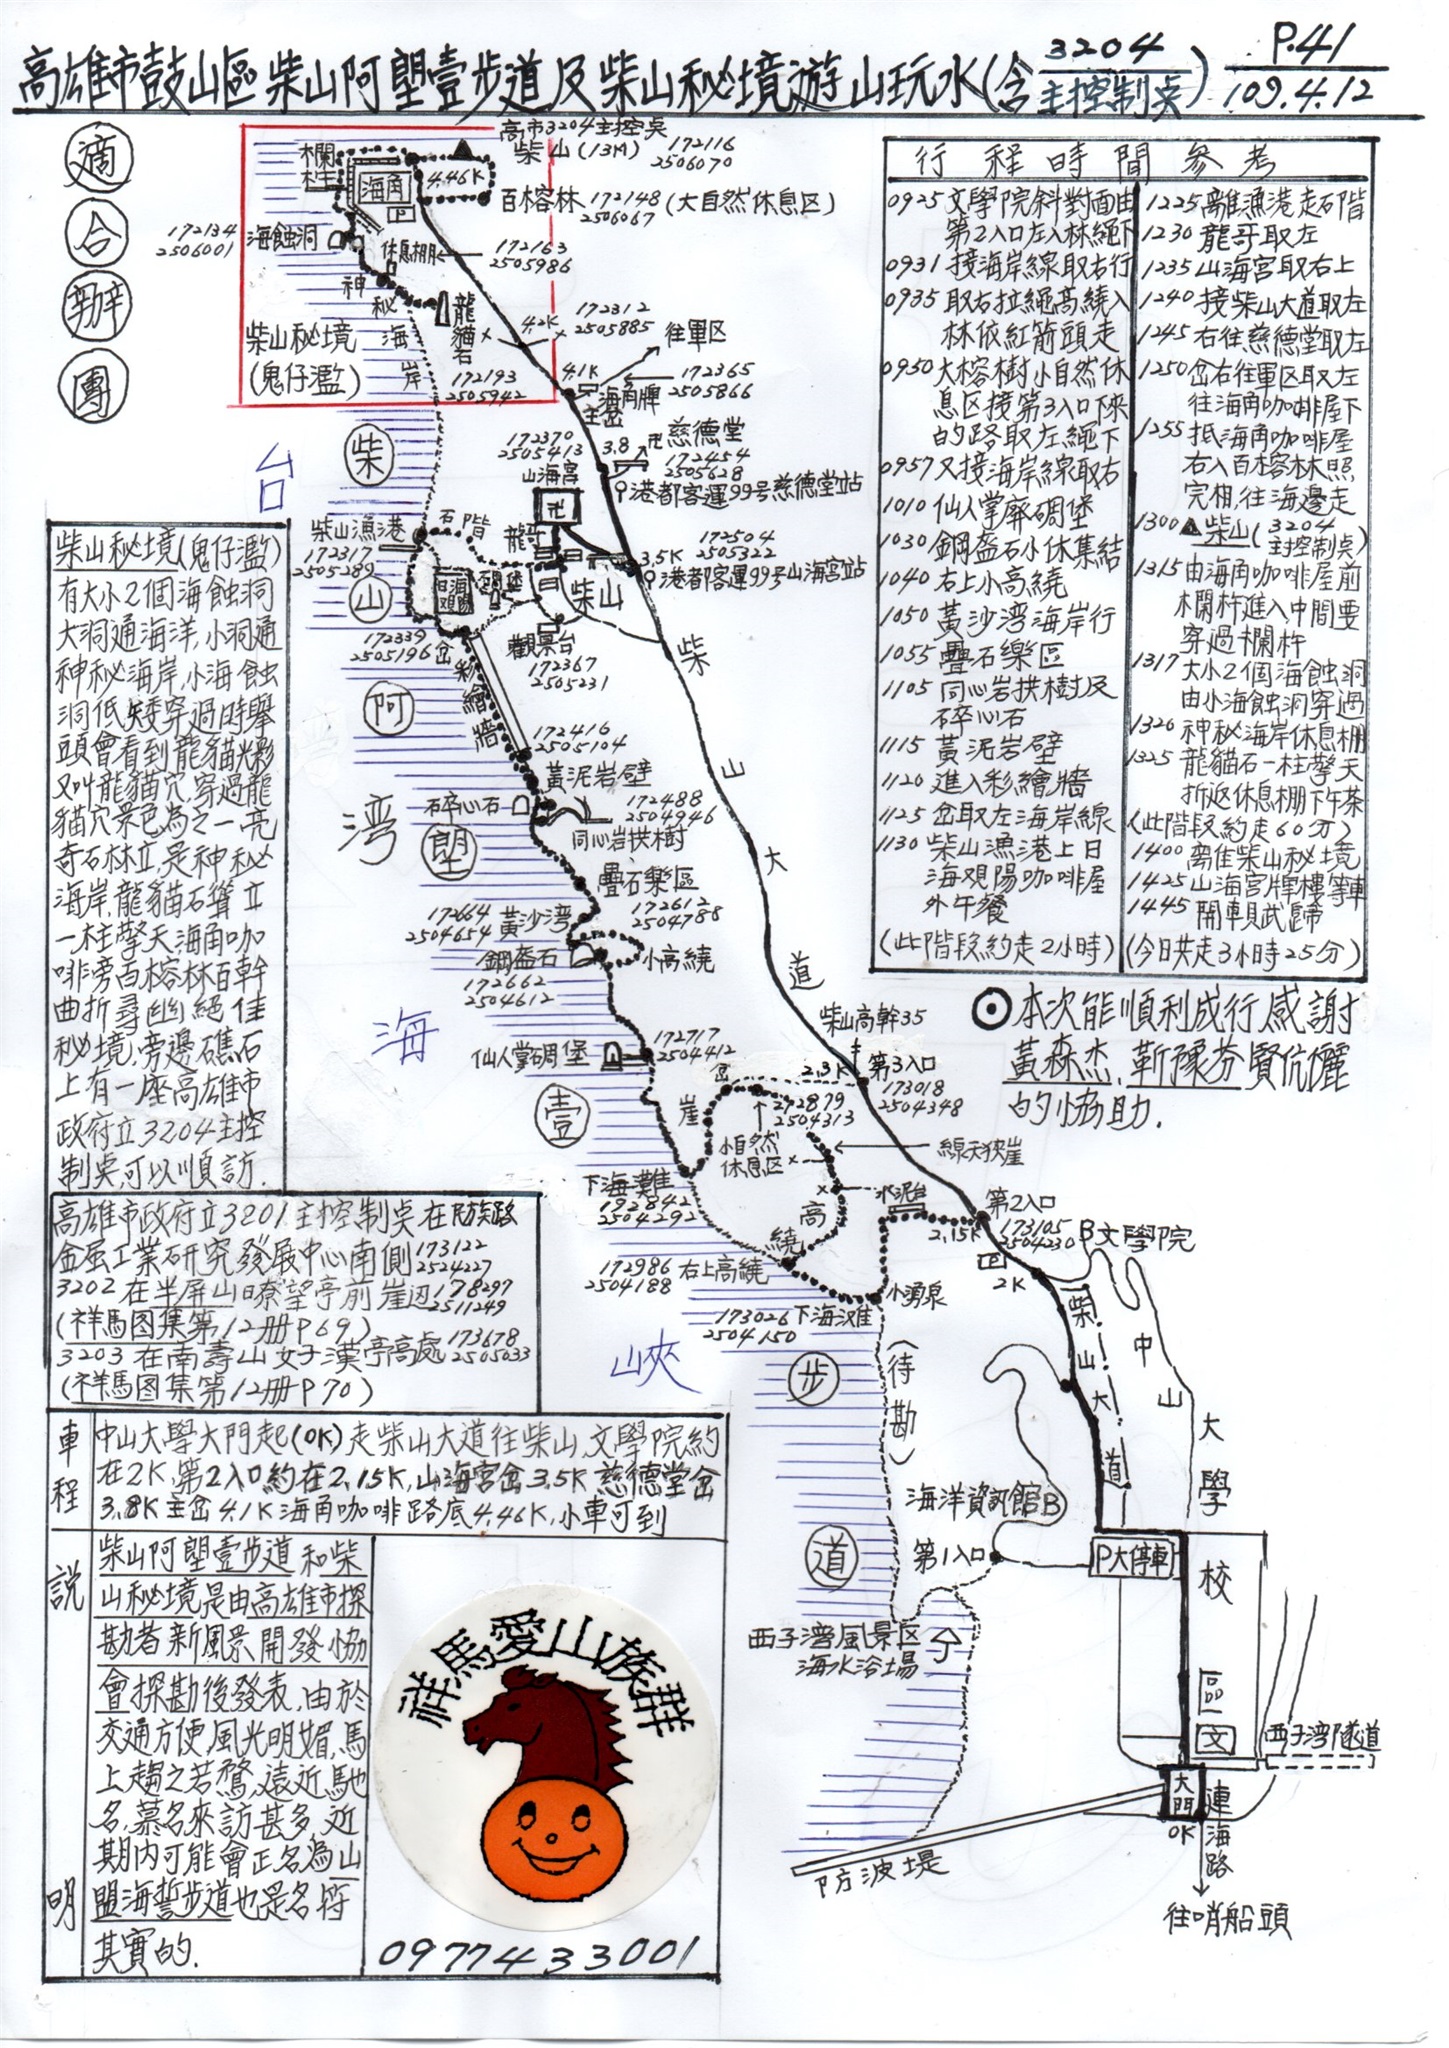 高雄市鼓山區柴山阿塱壹步道及柴山秘境遊山玩水(含3204主控制桌)
P.41
109.4.12
適合辦團
高市3204主控桌
柴山(13M) 172116 2506070
欄杆
海角
P
4.46K
百榕林 172148 2506067 (大自然休息区)
172134 2506001
海蝕洞
休息棚
172163 2505986
神秘海岸
龍貓石
172193 2505942
4.2K
172312 2505885
柴山秘境
(鬼仔濫)
往軍区
4.1K
主岔
海角牌
172365 2505866
172370 2505413
山海宮
3.8
慈德堂
172454 2505628
港都客運99号慈德堂站
柴山漁港
172317 2505289
石階
龍哥
172504 2505322
3.5K
港都客運99号山海宮站
碉堡
柴山
觀景台
172367 2505231
172339 2505196
岔
彩繪牆
172416 2505104
黃泥岩壁
碎心石
172488 2504946
同心岩拱樹
疊石樂區
172612 2504788
172664 2504654
黃沙湾
鋼盔石
172662 2504612
小高繞
仙人掌碉堡
172717 2504412
柴山高幹35
第3入口
173018 2504348
2.3K
岔
崖
172879 2504313
小自然休息区
線天狹崖
下海灘
172842 2504292
高繞
水泥台
第2入口
173105 2504230
2.15K
B文學院
P
2K
172986 2504188
右上高繞
小湧泉
173026 2504150
下海滩
(待勘)
柴山大道
柴山大道
中山大學校區
海洋資訊館B
第1入口
P大停車
西子湾風景区
海水浴場
文
西子湾隧道
大門
OK
連海路
往哨船頭
防波堤
台湾海峽
柴山阿塱壹步道
行程時間參考
0925 文學院斜對面由
第2入口左入林繩下
0931 接海岸線取右行
0935 取右拉繩高繞入
林依紅箭頭走
0950 大榕樹小自然休
息区接第3入口下來
的路取左繩下
0957 又接海岸線取右
1010 仙人掌廨碉堡
1030 鋼盔石小休集結
1040 右上小高繞
1050 黃沙湾海岸行
1055 疊石樂區
1105 同心岩拱樹及
碎心石
1115 黃泥岩壁
1120 進入彩繪牆
1125 岔取左海岸線
1130 柴山漁港上日
海观陽咖啡屋
外午餐
(此階段約走2小時)
1225 離漁港走石階
1230 龍哥取左
1235 山海宮取右上
1240 接柴山大道取左
1245 右往慈德堂取左
1250 岔右往軍区取左
往海角咖啡屋下
1255 抵海角咖啡屋
右入百榕林照
完相,往海邊走
1300 ▲柴山(3204主控制桌)
1315 由海角咖啡屋前
欄杆進入中間要
穿過欄杆
1317 大小2個海蝕洞
由小海蝕洞穿過
1320 神秘海岸休息棚
1325 龍貓石一柱擎天
折返休息棚下午茶
(此階段約走60分)
1400 離柴山秘境
1425 山海宮牌樓等車
1445 開車賦歸
(今日共走3小時25分)
⊙本次能順利成行感謝
黃森杰、靳豫芬賢伉儷
的協助.
柴山秘境(鬼仔濫)
有大小2個海蝕洞
大洞通海洋,小洞通
神秘海岸,小海蝕
洞低矮穿過時舉
頭會看到龍貓光影
又叫龍貓穴,穿過龍
貓穴景色為之一亮
奇石林立,是神秘
海岸,龍貓石聳立
一柱擎天海角咖
啡旁百榕林百幹
曲折尋幽絕佳
秘境,旁邊礁石
上有一座高雄市
政府立3204主控
制桌,可以順訪.
高雄市政府立3201主控制桌在民族路
金屬工業研究發展中心南側 173122 2524227
3202在半屏山瞭望亭前崖边 178297 2511249
(祥馬图集第12册P69)
3203在南壽山女子漢亭高處 173678 2505033
(祥馬图集第12册P70)
車程
中山大學大門起(0K)走柴山大道往柴山,文學院約
在2K,第2入口約在2.15K,山海宮岔3.5K慈德堂岔
3.8K主岔4.1K海角咖啡路底4.46K,小車可到
說明
柴山阿塱壹步道和柴
山秘境是由高雄市探
勘者新風景開發協
會探勘後發表,由於
交通方便,風光明媚,馬
上趨之若鶩,遠近馳
名,慕名來訪甚多,近
期內可能會正名為山
盟海誓步道也是名符
其實的.
祥馬愛山族群
0977433001